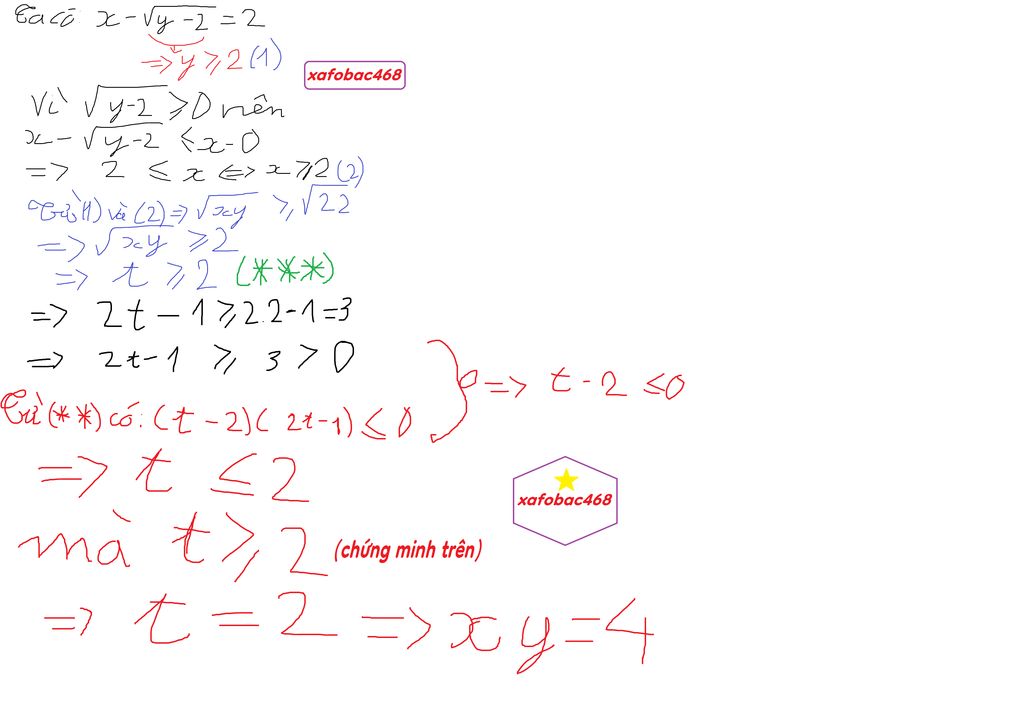 Ta có x - √(y - 2) = 2
=> y ≥ 2 (1)
xafobac468
Vì √(y-2) ≥ 0 nên
x - √(y-2) ≤ x - 0
=> 2 ≤ x <=> x ≥ 2 (2)
Từ (1) và (2) => √(xy) ≥ √(2.2)
=> √(xy) ≥ 2
=> t ≥ 2 (***)
=> 2t - 1 ≥ 2.2 - 1 = 3
=> 2t - 1 ≥ 3 > 0
=> t - 2 ≤ 0
Từ (**) có: (t - 2)(2t - 1) ≤ 0
=> t ≤ 2
xafobac468
mà t ≥ 2 (chứng minh trên)
=> t = 2 => xy = 4